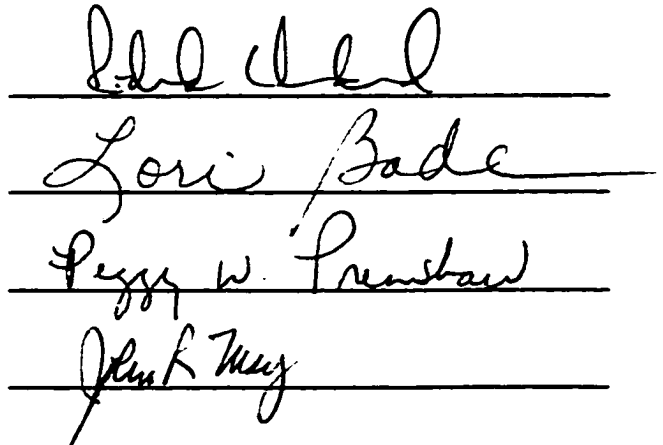 Lori Bade
Peggy W. Prenshaw
John R May